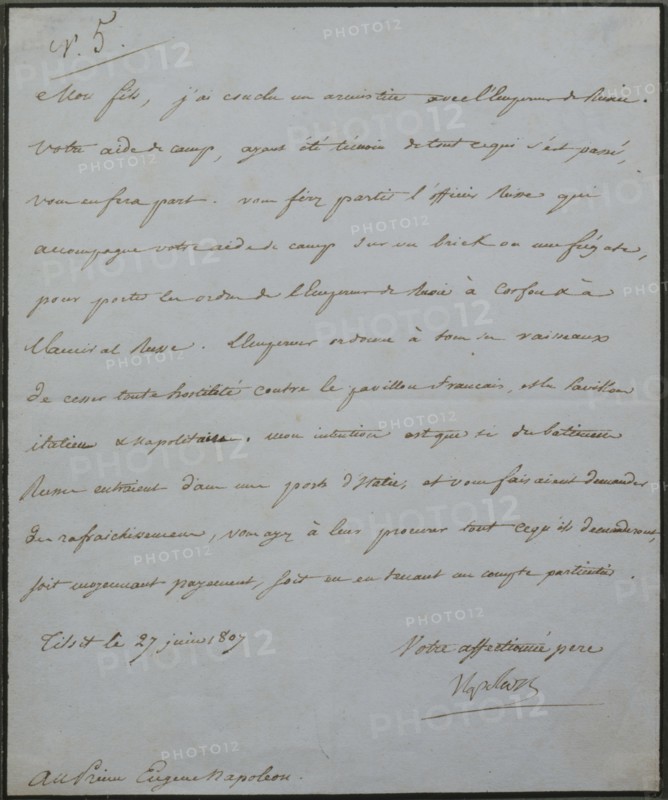 N. 5.
Mon fils, j'ai conclu un armistice avec l'Empereur de Russie.
Votre aide de camp, ayant été témoin de tout ce qui s'est passé,
vous en fera part. vous ferez partir l'officier Russe qui
accompagne votre aide de camp sur un brick ou une frégate,
pour porter les ordres de l'Empereur de Russie à Corfou & à
l'amiral Russe. L'Empereur ordonne à tous ses vaisseaux
de cesser toute hostilité contre le pavillon Français, et le Pavillon
italien & napolitain. mon intention est que si des batimens
Russes entraient dans une ports d'Italie, et vous faisaient demander
des rafraichissemens, vous ayez à leur procurer tout ce qu'ils demanderont,
soit moyennant payement, soit en en tenant un compte particulier.
Tilsit le 27 juin 1807
Votre affectionné pere
Napoleon
Au Prince Eugene Napoleon.
PHOTO12